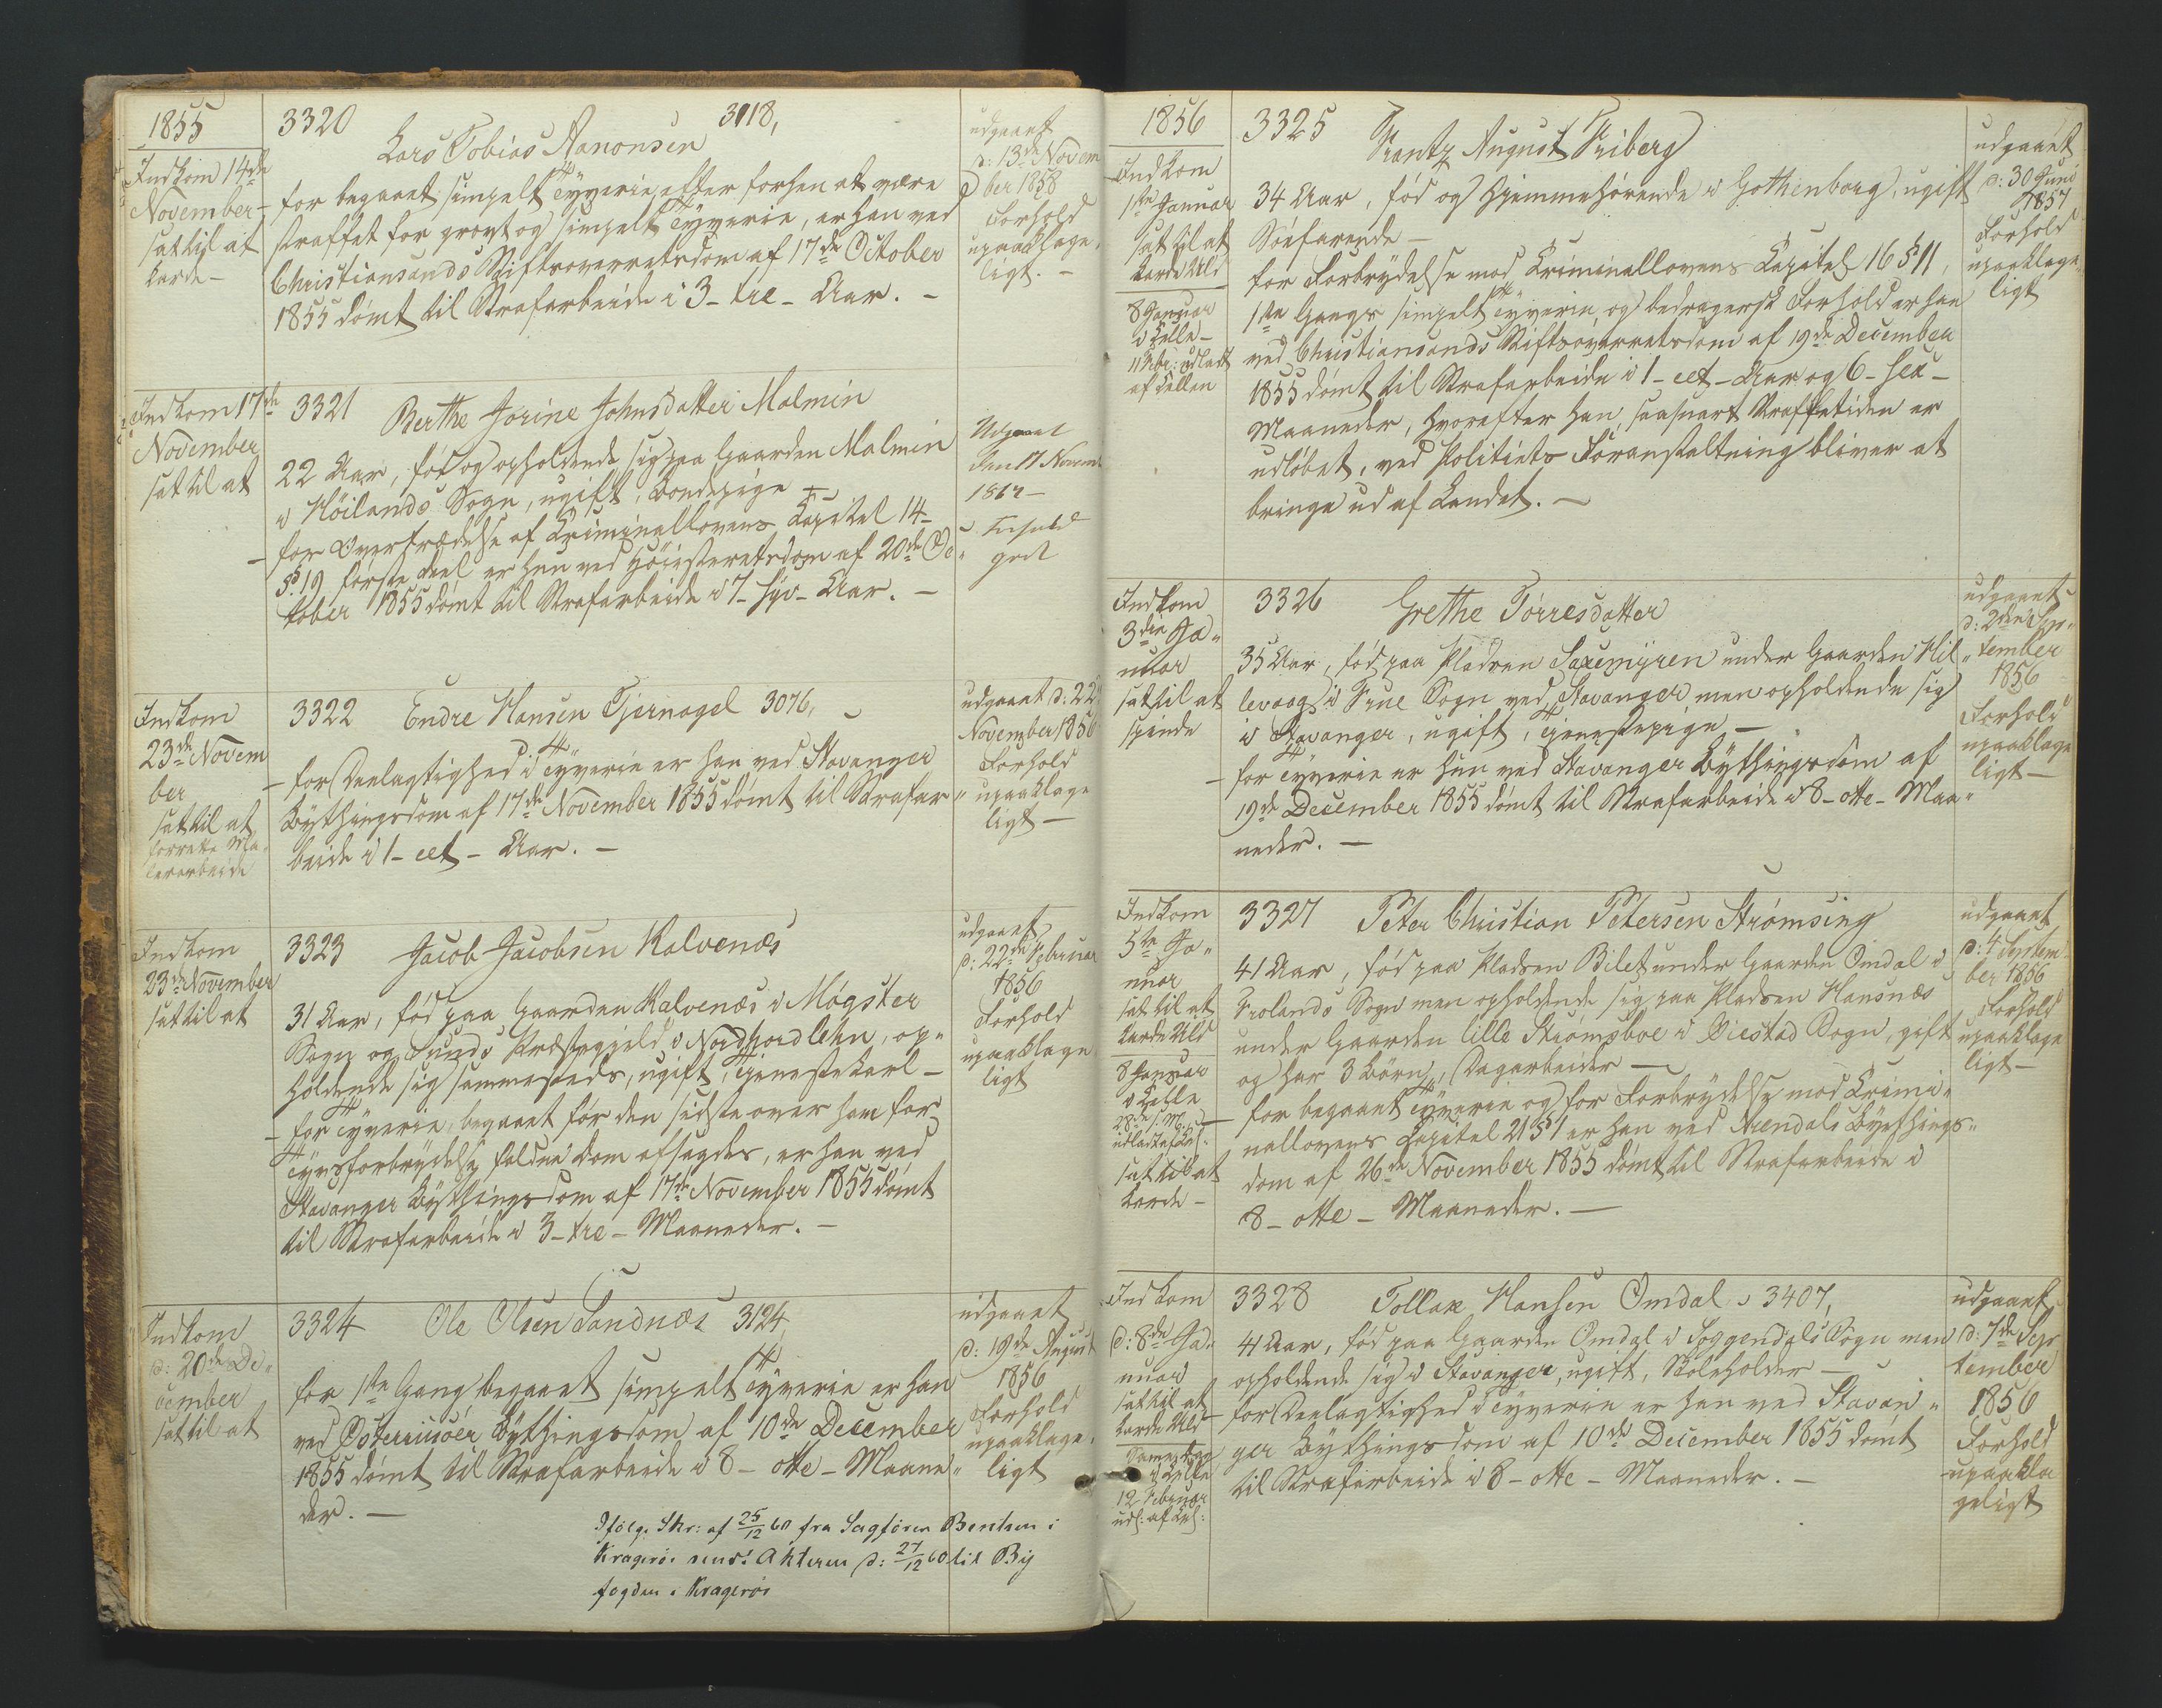 1855
Indkom 14de
November
sat til at
karde -
3320
3118,
Lars Tobias Aanonsen
for begaaet simpelt Tyverie efter forhen at være
straffet for grovt og simpelt Tyverie, er han ved
Christiansands Stiftsoverretsdom af 17de October
1855 dømt til Strafarbeide i 3 - tre - Aar. -
udgaaet
d: 13de Novem
ber 1858
Forhold
upaaklage,
ligt. -
Indkom 17de
November
sat til at
3321 Berthe Jorine Johnsdatter Malmin
22 Aar, fød og opholdende sig paa Gaarden Malmin
i Höilands Sogn, ugift, Bondepige -
- for Overtrædelse af Criminallovens Capitel 14
§ 19 første Deel er hun ved Høiesteretsdom af 20de Oc
tober 1855 dømt til Strafarbeide i 7 - syv - Aar. -
Udgaaet
den 17 Novemb
186
Forhold
godt
Indkom
23de Novem
ber
sat til at
forrette Ma
lerarbeide
3322 Endre Hansen Tjernagel 3076,
- for Deelagtighed i Tyverie er han ved Stavanger
Bythingsdom af 17de November 1855 dømt til Strafar
beide i 1 - eet - Aar. -
udgaaet d: 22
November 1856
Forhold
upaaklage
ligt -
Indkom
23de November
sat til at
3323 Jacob Jacobsen Kalvenæs
31 Aar, fød paa Gaarden Kalvenæs i Møgster
Sogn og Sunds Præstegjeld i Nordhordlehn, op„
holdende sig sammesteds, ugift, Tjenestekarl -
- for Tyverie, begaaet før den sidste over ham for
Tyvsforbrydelse faldne Dom afsagdes, er han ved
Stavanger Bythingsdom af 17de November 1855 dømt
til Strafarbeide i 3 - tre - Maaneder. -
udgaaet
d: 22de Februar
1856
Forhold
upaaklage,
ligt
Indkom
d: 20de De„
cember
sat til at
3324 Ole Olsen Sandnæs 3124,
for 1ste Gang begaaet simpelt Tyverie er han
ved Österriisöer Bythingsdom af 10de December
1855 dømt til Strafarbeide i 8 - otte - Maane„
der. -
udgaaet
d: 19de August
1856
Forhold
upaaklage,
ligt
Ifølge Skr: af 25/12 60 fra Sagfører Bentsen i
Kragerø sendt Akterne d: 27/12 60 til By
fogden i Kragerø
1856
Indkom
1ste Januar
sat til at
karde Uld
8 Januar
i Celle -
udladt
af Cellen
3325 Frantz August Friberg
34 Aar, fød og hjemmehørende i Gothenborg, ugift
Søefarende -
for Forbrydelse mod Criminallovens Capitel 16 § 11,
1ste Gangs simpelt Tyverie, og bedragersk Forhold er han
ved Christiansands Stiftsoverretsdom af 19de December
1855 dømt til Strafarbeide i 1 - eet - Aar og 6 - sex -
Maaneder, hvorefter han, saasnart Straffetiden er
udløbet, ved Politiets Foranstaltning bliver at
bringe ud af Landet. -
udgaaet
d: 30 Juni
1857
Forhold
upaaklage„
ligt
Indkom
3die Ja„
nuar
sat til at
spinde
3326 Grethe Torresdatter
35 Aar, fød paa Pladsen Saxemyren under Gaarden Hil„
levaag i Frue Sogn ved Stavanger, men opholdende sig
i Stavanger, ugift, Tjenestepige -
- for Tyverie er hun ved Stavanger Bythingsdom af
19de December 1855 dømt til Strafarbeide i 8 - otte - Maa„
neder. -
udgaaet
d: 2den Sep„
tember
1856
Forhold
upaaklage
ligt -
Indkom
5te Ja„
nuar
sat til at
karde Uld
8 Januar
i Celle
28de s. M.
sat til at
karde -
3327 Peter Christian Petersen Strømsing
41 Aar, fød paa Pladsen Bilet under Gaarden Omdal i
Frolands Sogn men opholdende sig paa Pladsen Hansnæs
under Gaarden lille Strømsboe i Øiestad Sogn, gift
og har 3 Børn, Dagarbeider -
- for begaaet Tyverie og for Forbrydelse mod Crimi„
nallovens Capitel 21 § 1 er han ved Arendals Bythings„
dom af 26de November 1855 dømt til Strafarbeide i
8 - otte - Maaneder. -
udgaaet
d: 4 Septem
ber 1856
Forhold
upaaklage
ligt -
Indkom
d: 8de Ja„
nuar
sat til at
karde Uld
Samme Dag
i Celle
12 Februar
uds: af Cel:
3328 Tollak Hansen Omdal 3407,
41 Aar, fød paa Gaarden Omdal i Soggendals Sogn men
opholdende sig i Stavanger, ugift, Skoleholder -
for Deelagtighed i Tyverie er han ved Stavan„
ger Bythingsdom af 10de December 1855 dømt
til Strafarbeide i 8 - otte - Maaneder. -
udgaaet
d: 7de Sep
tember
1856
Forhold
upaakla
geligt